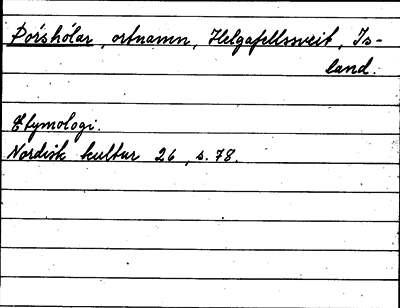 Þórshólar, ortnamn, Helgafellssveit, Is-
land.
Etymologi.
Nordisk kultur 26, s. 78.